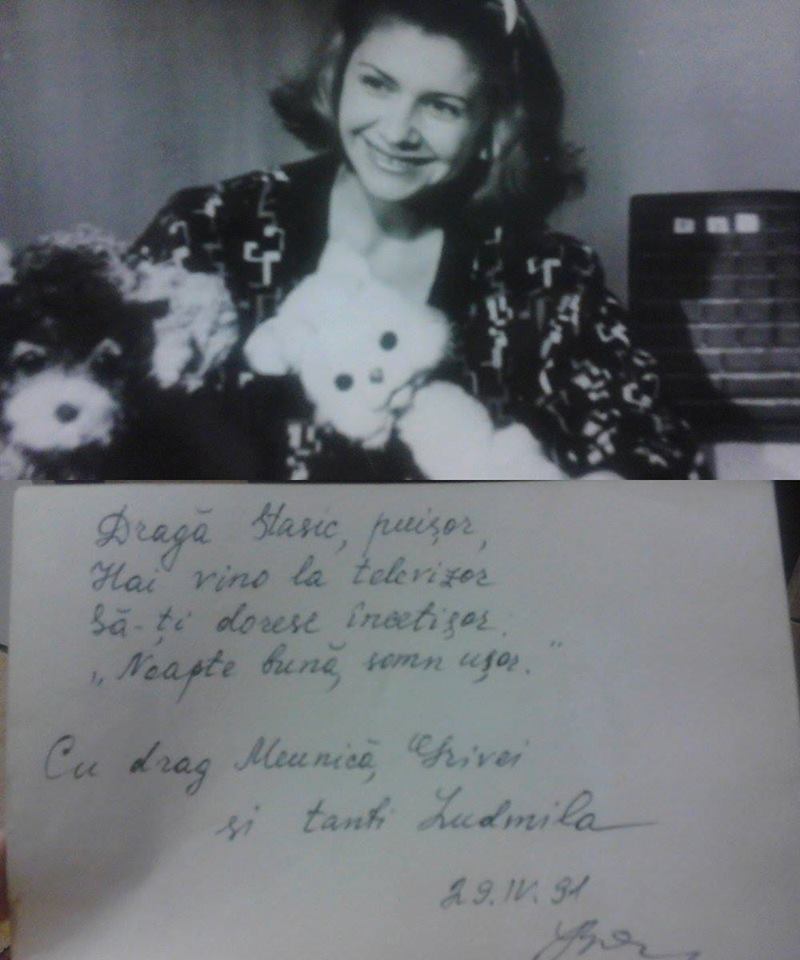 Dragă Stasic, puișor,
Hai vino la televizor
Să-ți doresc încetișor.
„Noapte bună, somn ușor."
Cu drag Meunică, Grivei
și tanti Ludmila
29.IV.91